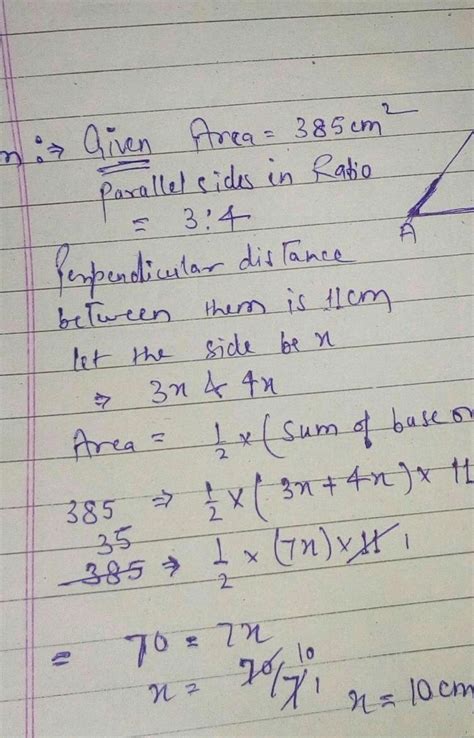 n :⇒ Given Area = 385cm²
Parallel sides in Ratio
= 3:4
A
Perpendicular distance
between them is 11cm
let the side be x
⇒ 3x & 4x
Area = 1/2 × (Sum of base or
385 ⇒ 1/2 × (3x + 4x) × 11
35
385 ⇒ 1/2 × (7x) × 11 1
= 70 = 7x
x = 70/7 10 1 x = 10cm